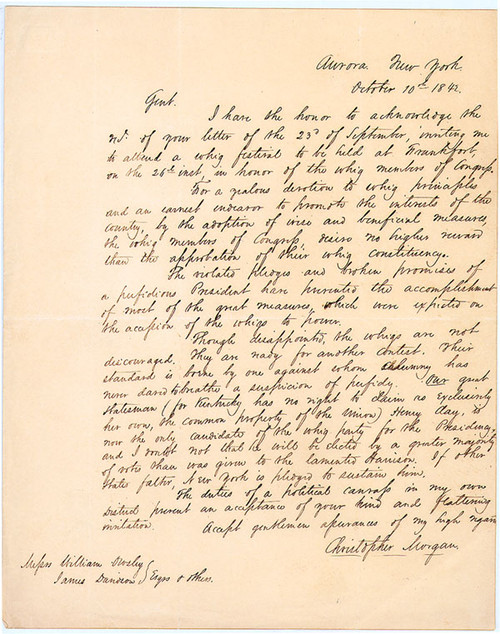 Aurora. New York.
October 10th 1842.
Gent.
I have the honor to acknowledge the
of your letter of the 23d of September, inviting me
to attend a whig festival to be held at Frankfort,
on the 26th inst, in honor of the whig members of Congress.
For a zealous devotion to whig principles
and an earnest endeavor to promote the interests of the
country, by the adoption of wise and beneficial measures,
the whig members of Congress, desire no higher reward
than the approbation of their whig constituency.
The violated pledges and broken promises of
a perfidious President have prevented the accomplishment
of most of the great measures, which were expected on
the accession of the whigs to power.
Though disappointed, the whigs are not
discouraged. They are ready for another contest. Their
standard is borne by one against whom calumny has
never dared to breathe a suspicion of perfidy. Our great
Statesman (for Kentucky has no right to claim as exclusively
her own, the common property of the Union) Henry Clay, is
now the only candidate of the whig party for the Presidency,
and I doubt not that he will be elected by a greater majority
of votes than was given to the lamented Harrison. If other
States falter, New York is pledged to sustain him.
The duties of a political canvass in my own
District prevent an acceptance of your kind and flattering
invitation.
Accept gentlemen assurances of my high regard
Christopher Morgan.
Messrs William
James Esqrs & others.